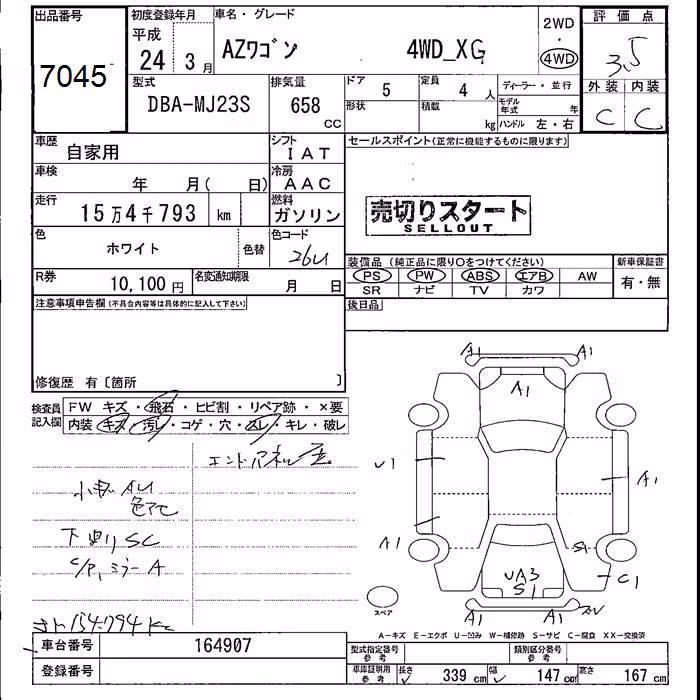 出品番号 初度登録年月 車名・グレード 2WD・4WD 評価点
7045 平成 24 3月 AZワゴン 4WD_XG 3.5
型式 排気量 ドア 5 定員 4人 ディーラー・並行 外装 内装
DBA-MJ23S 658 CC 形状 積載 kg モデル年式 年 ハンドル 左・右 C C
車歴 自家用 シフト IAT セールスポイント(正常に機能するものに限ります)
車検 年 月( 日) 冷房 AAC
走行 15万4千793 km 燃料 ガソリン 売切りスタート
SELLOUT
色 ホワイト 色替 色コード 26U
装備品 (純正品に限り○をつけてください) 新車保証書
R券 10,100円 名変通知期限 月 日 PS PW ABS エアB AW 有・無
SR ナビ TV カワ
注意事項申告欄(不具合内容等は具体的に記入して下さい) 後日品
修復歴 有〔箇所 〕
検査員記入欄 FW キズ・飛石・ヒビ割・リペア跡・×要
内装 キズ・汚レ・コゲ・穴・スレ・キレ・破レ
A1 A1
A1
U1 A1
小キズ AU
下廻り SC
A1 S1
C/P, ミラーA
UA3
S1
C1
スペア
A1 A1
154.794 K
A-キズ E-エクボ U-凹み W-補修跡 S-サビ C-腐食 XX-交換済
車台番号 164907 型式指定番号 参考 類別区分番号 参考
登録番号 車庫証明用 参考 長さ 339 cm 幅 147 cm 高さ 167 cm